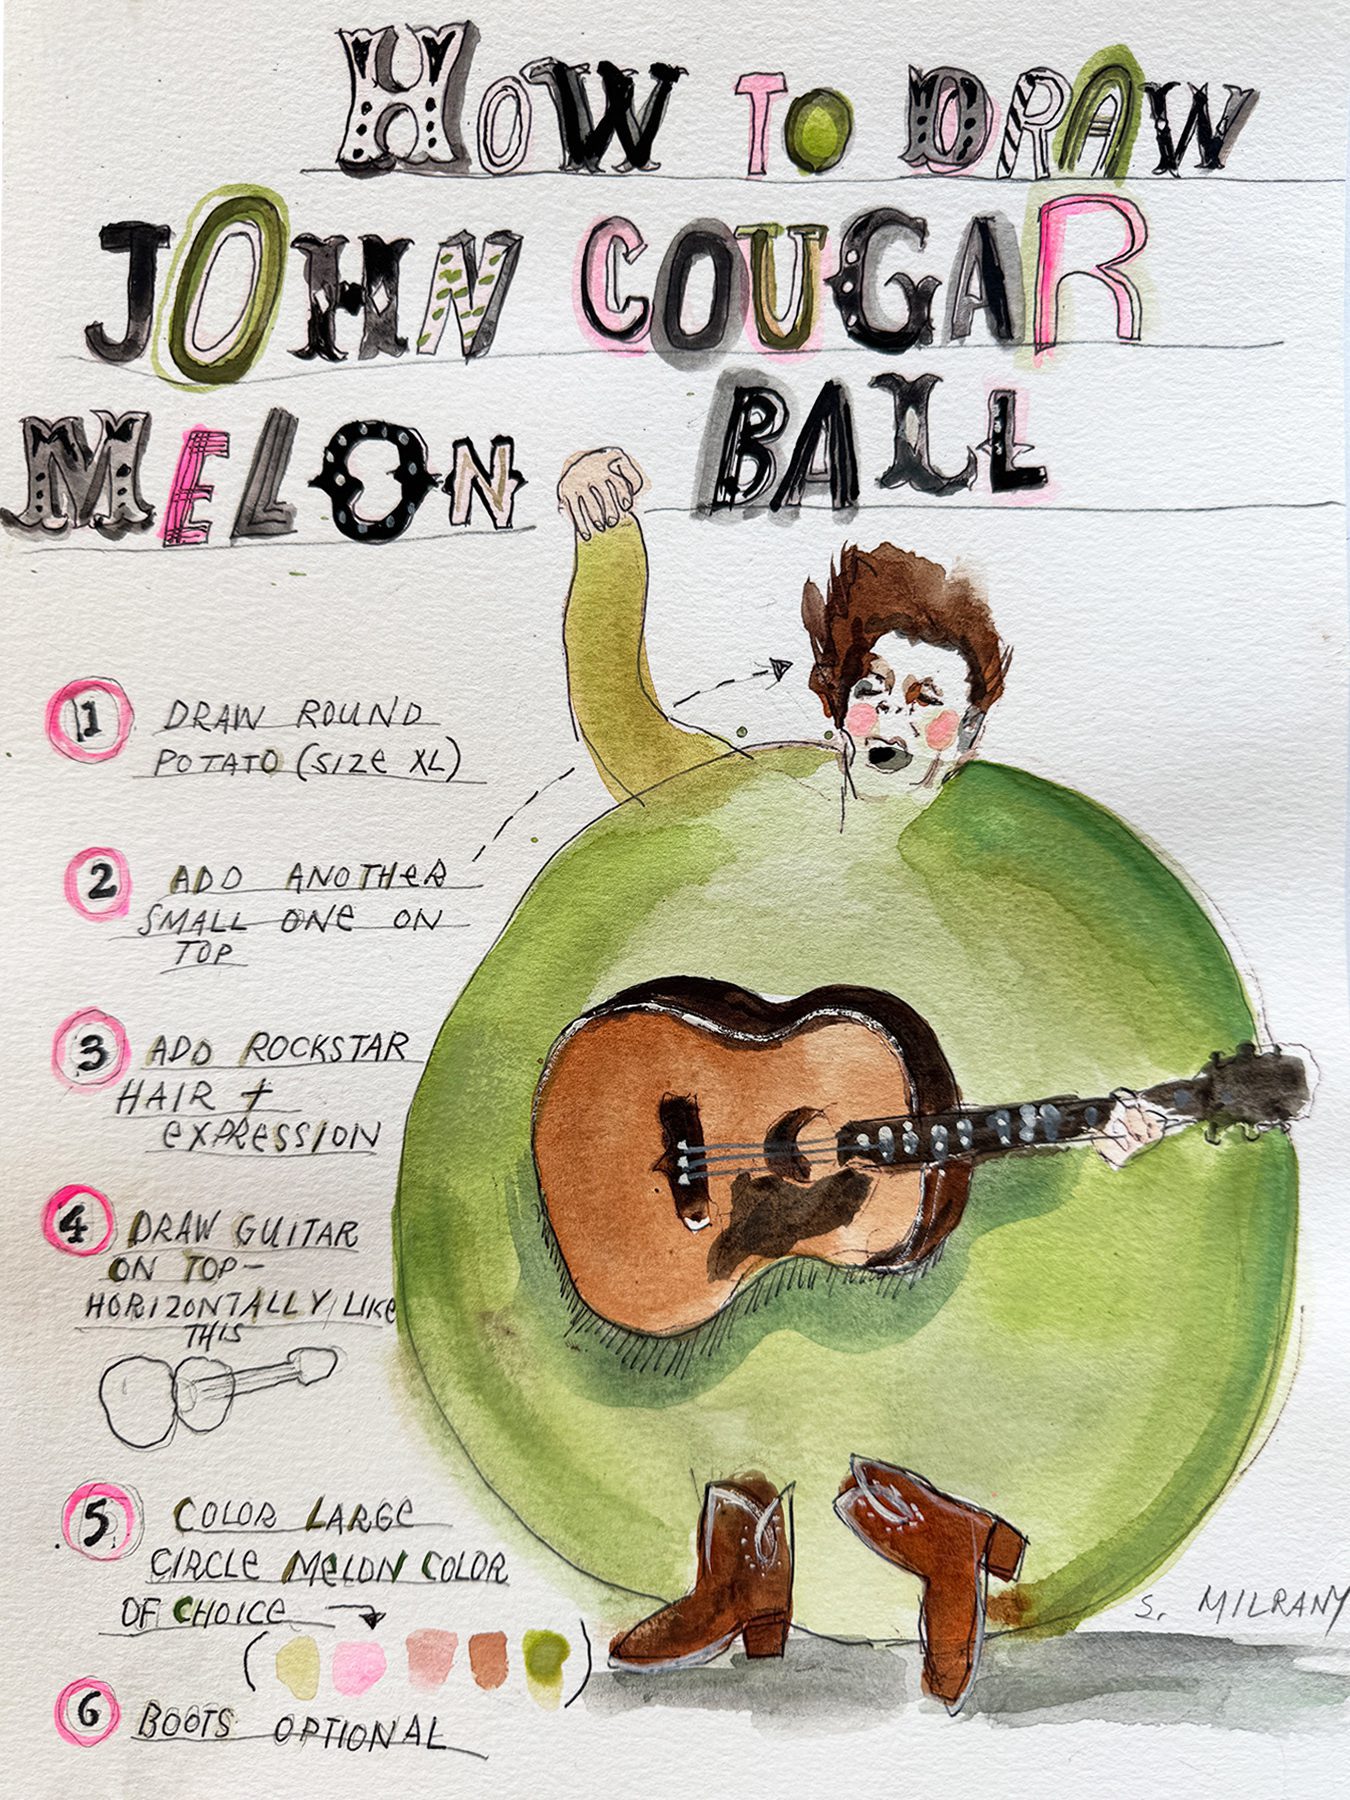 HOW TO DRAW
JOHN COUGAR
MELON BALL
1 DRAW ROUND
POTATO (SIZE XL)
2 ADD ANOTHER
SMALL ONE ON
TOP
3 ADD ROCKSTAR
HAIR +
EXPRESSION
4 DRAW GUITAR
ON TOP-
HORIZONTALLY, LIKE
THIS
5 COLOR LARGE
CIRCLE MELON COLOR
OF CHOICE
6 BOOTS OPTIONAL
S. MILRANY